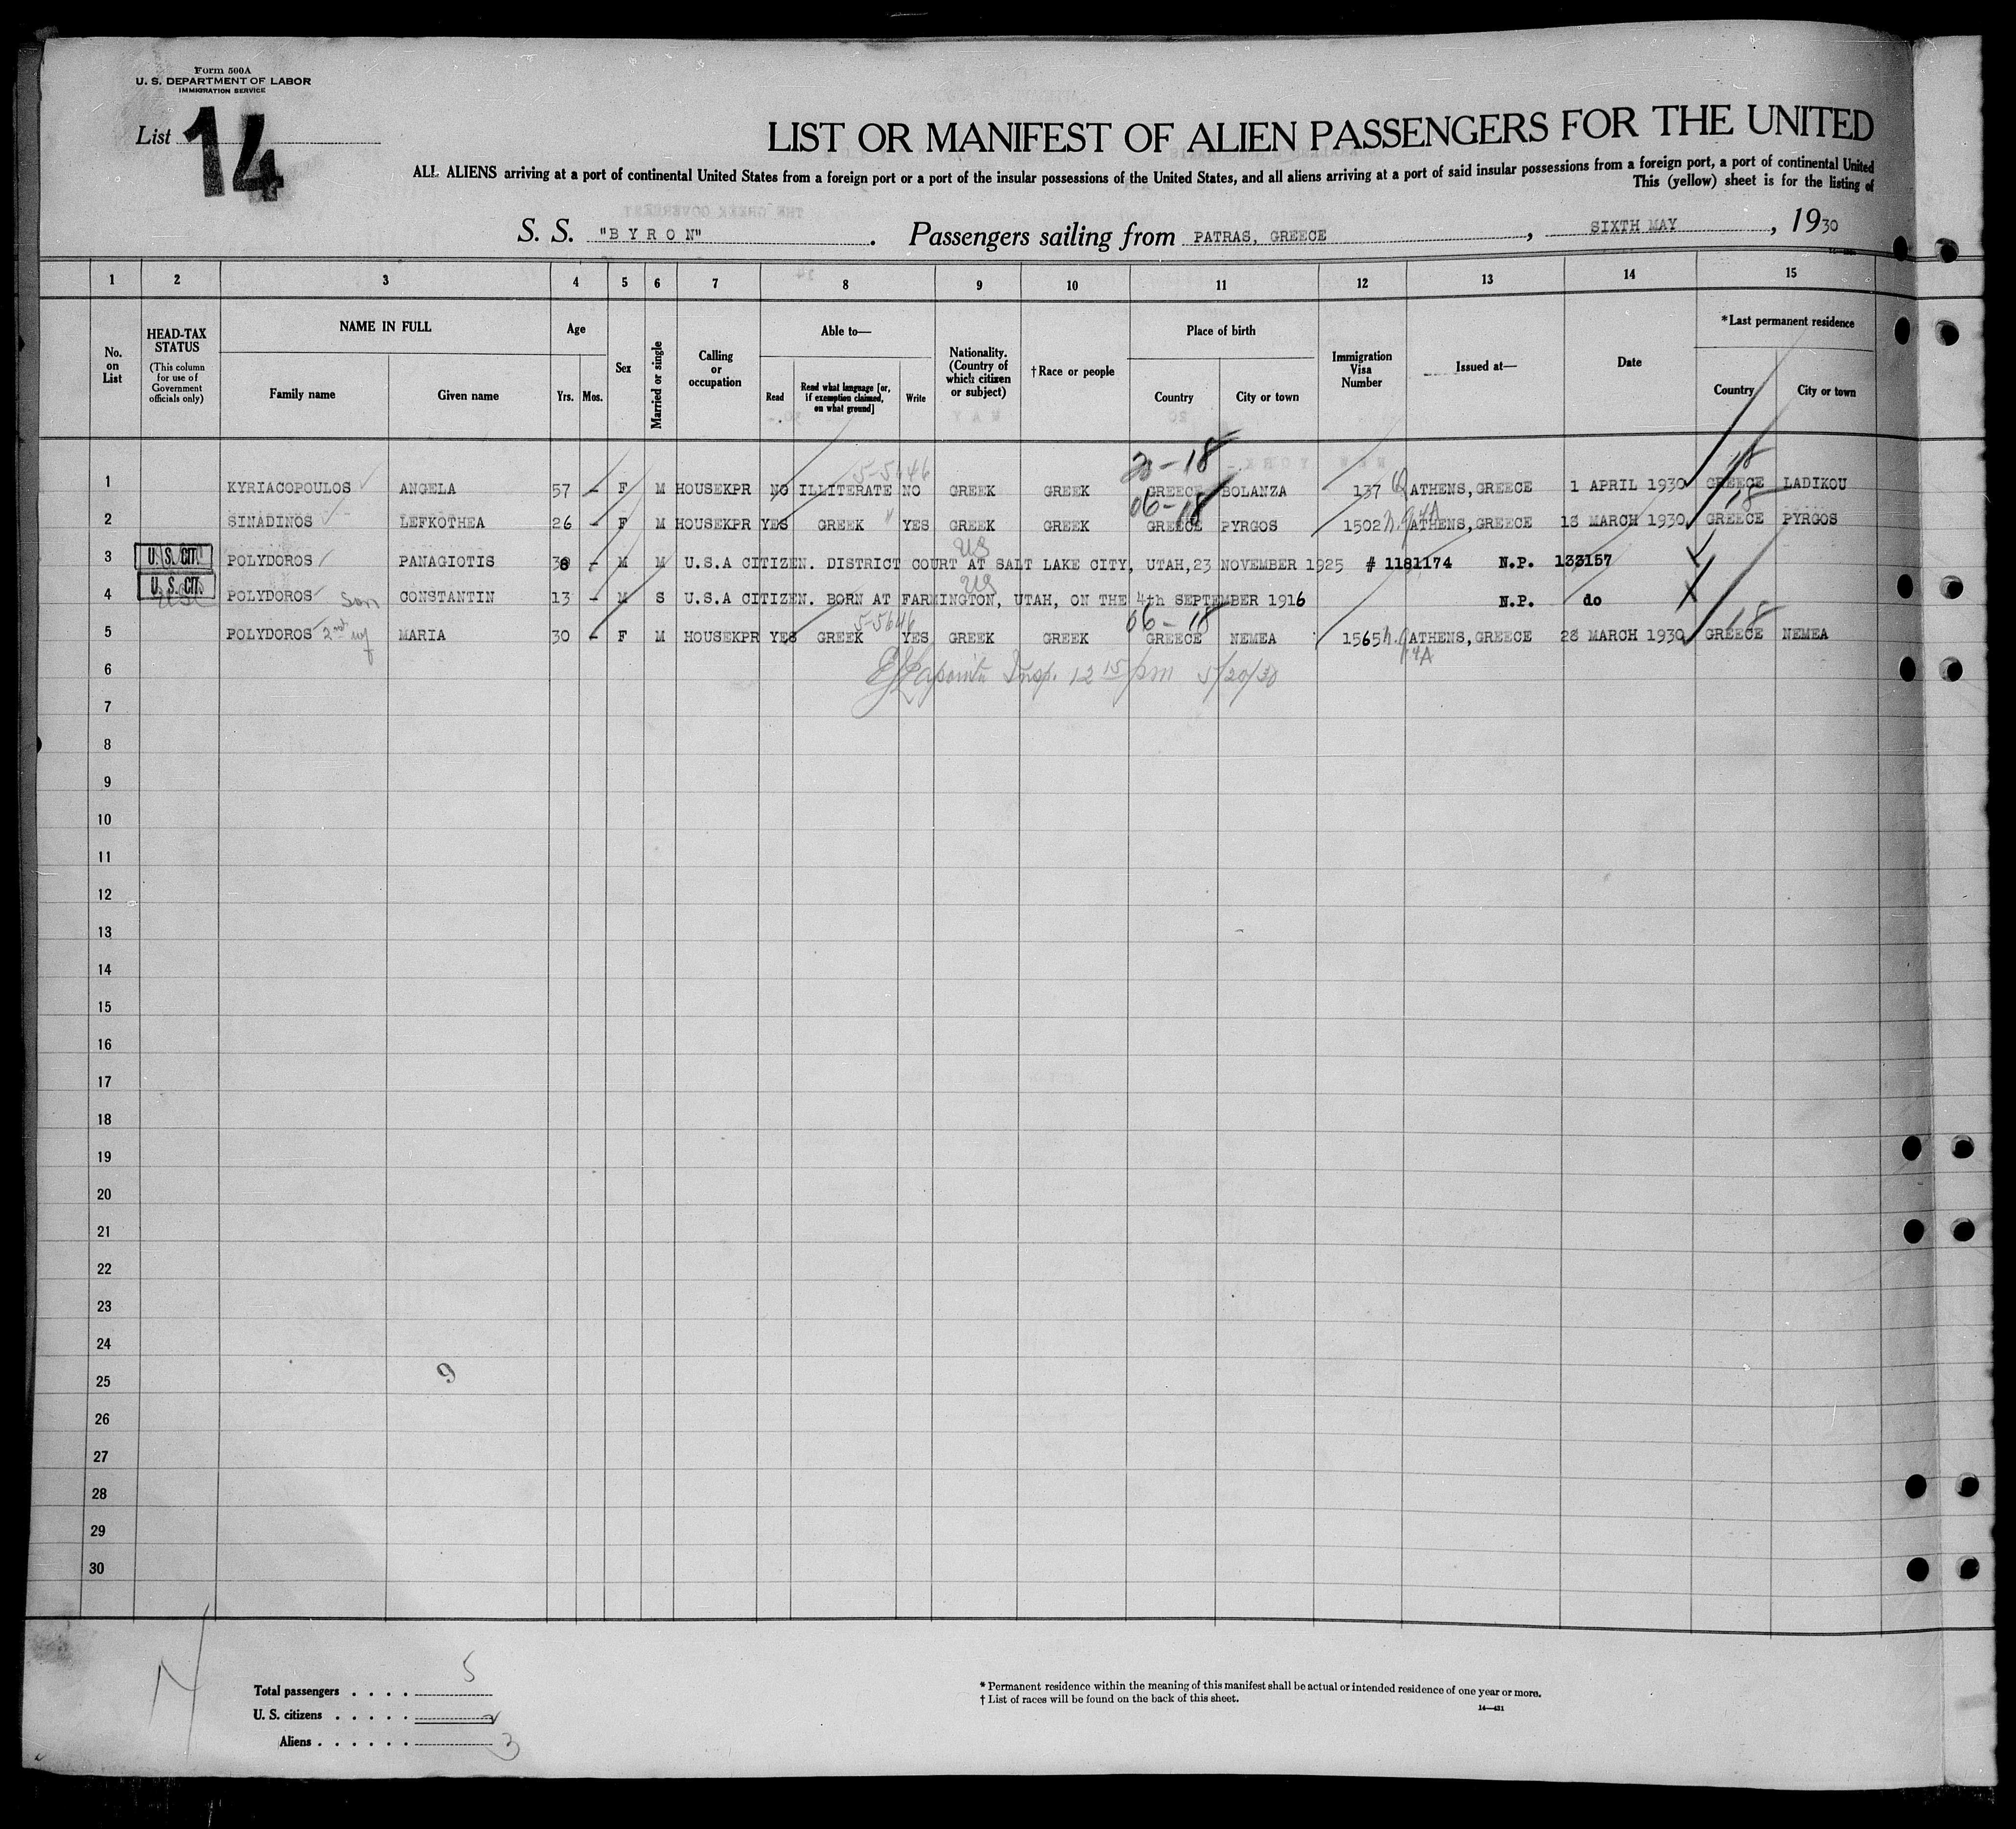 Form 500A
U. S. DEPARTMENT OF LABOR
IMMIGRATION SERVICE
List 14
LIST OR MANIFEST OF ALIEN PASSENGERS FOR THE UNITED
ALL ALIENS arriving at a port of continental United States from a foreign port or a port of the insular possessions of the United States, and all aliens arriving at a port of said insular possessions from a foreign port, a port of continental United
This (yellow) sheet is for the listing of
S. S. "BYRON" . Passengers sailing from PATRAS, GREECE , SIXTH MAY , 1930
1 2 3 4 5 6 7 8 9 10 11 12 13 14 15
No. on List
HEAD-TAX STATUS (This column for use of Government officials only)
NAME IN FULL Family name Given name
Age Yrs. Mos.
Sex
Married or single
Calling or occupation
Able to— Read Read what language [or, if exemption claimed, on what ground] Write
Nationality. (Country of which citizen or subject)
†Race or people
Place of birth Country City or town
Immigration Visa Number
Issued at—
Date
*Last permanent residence Country City or town
5-5646 18
1 KYRIACOPOULOS ANGELA 57 - F M HOUSEKPR NO ILLITERATE NO GREEK GREEK GREECE BOLANZA 137 ATHENS, GREECE 1 APRIL 1930 GREECE LADIKOU
06-18 18
2 SINADINOS LEFKOTHEA 26 - F M HOUSEKPR YES GREEK " YES GREEK GREEK GREECE PYRGOS 1502 ATHENS, GREECE 18 MARCH 1930 GREECE PYRGOS
US
3 U. S. CIT. POLYDOROS PANAGIOTIS 38 - M M U.S.A CITIZEN. DISTRICT COURT AT SALT LAKE CITY, UTAH,23 NOVEMBER 1925 # 1181174 N.P. 133157
US
4 U. S. CIT. POLYDOROS Son CONSTANTIN 13 - M S U.S.A CITIZEN. BORN AT FARMINGTON, UTAH, ON THE 4th SEPTEMBER 1916 N.P. do
5-5646 06-18 18
5 POLYDOROS 2nd wf MARIA 30 - F M HOUSEKPR YES GREEK YES GREEK GREEK GREECE NEMEA 1565 ATHENS, GREECE 28 MARCH 1930 GREECE NEMEA
6 Insp. 12 15 pm 5/20/30
7
8
9
10
11
12
13
14
15
16
17
18
19
20
21
22
23
24
25 9
26
27
28
29
30
Total passengers . . . . 5
U. S. citizens . . . . . 2
Aliens . . . . . . 3
* Permanent residence within the meaning of this manifest shall be actual or intended residence of one year or more.
† List of races will be found on the back of this sheet.
14—431